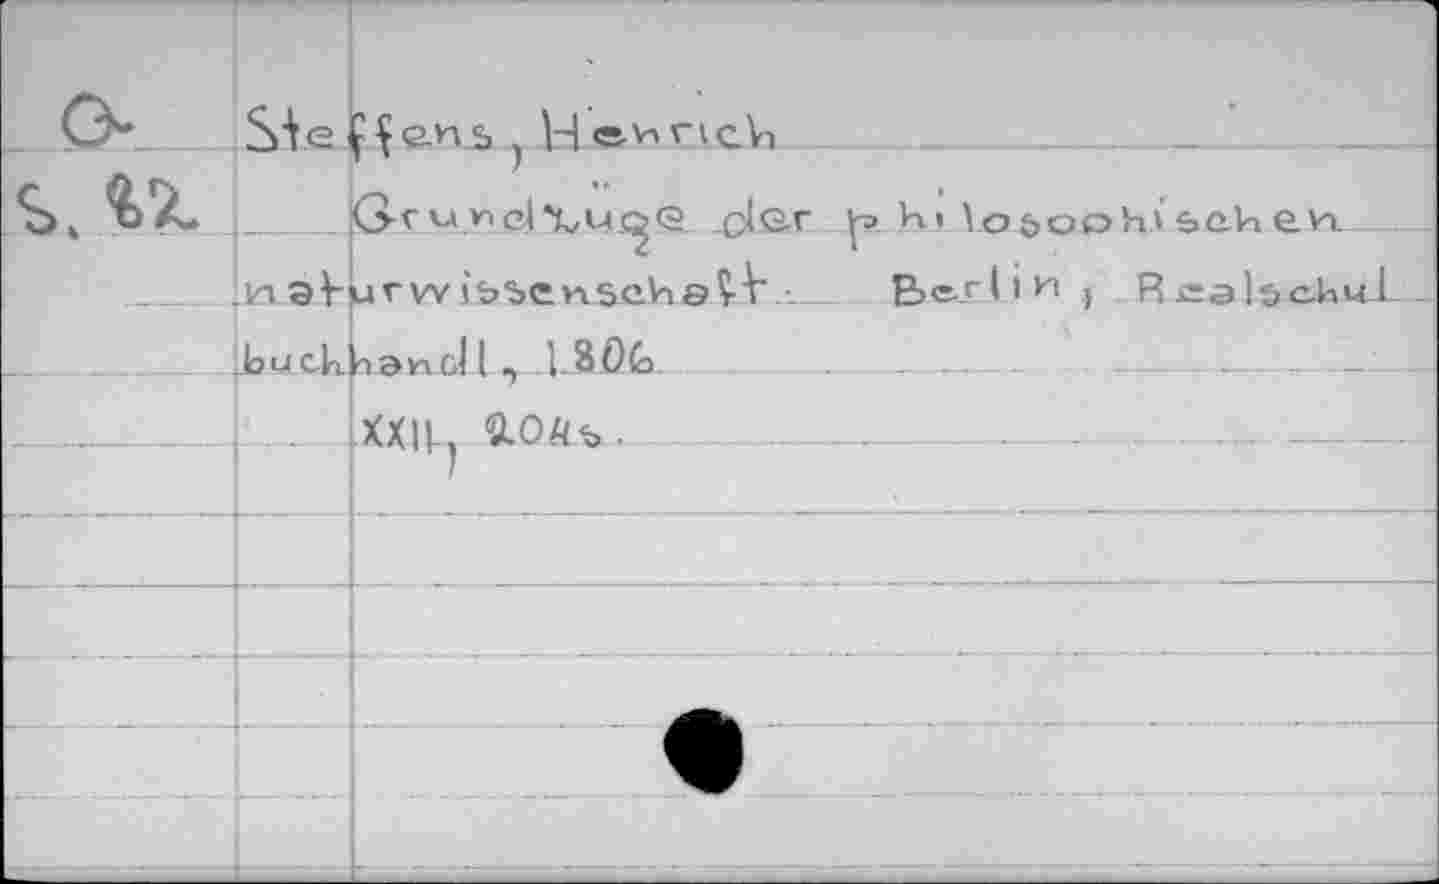 G
Steffens, Henrich
S. 82.
Grundzüge der philosophischen
naturwissenschaft. Berlin, Realschul
buchhandl, 1806
XXII, 204s.